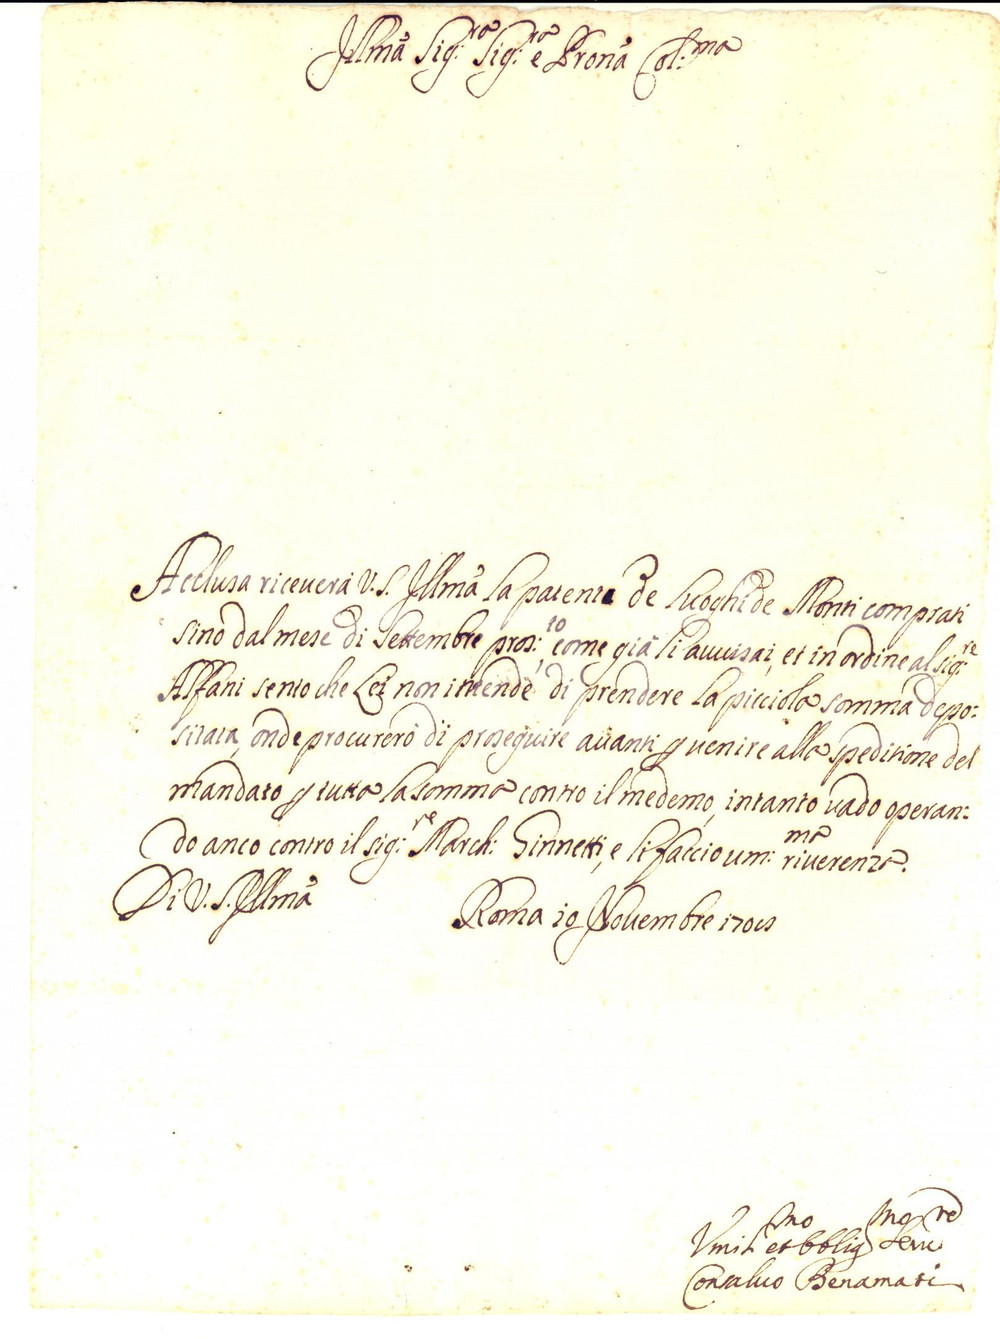 Illmã Sig:ra Sig:ra e Pronã Col:ma
Acclusa riceverà V.S. Illmã la patente de luoghi de Monti comprati
sino dal mese di Settembre pros:to come già li avvisai, et in ordine al sig:re
Alfani sento che Lei non intende di prendere la picciola somma depo-
sitata, onde procurerò di proseguire avanti p venire alla speditione del
mandato p tutta la somma contro il medemo, intanto vado operan-
do anco contro il sig:re March: Ginnetti, e li faccio um:ma riverenza.
Di V.S. Illmã
Roma 10 Novembre
Umil:mo et obblig:mo Serv:re
Consalvo Benamati